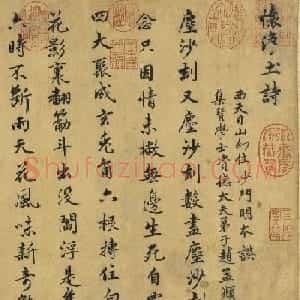 懷淨土詩
西天目山幻住沙門明本譔
集賢學士資德大夫弟子趙孟頫
塵沙刼又塵沙刼數盡塵沙
念只因情未撇無邊生死自
四大聚成玄兔角六根摶住
花影裏翻筋斗出没閻浮是
六時不斷雨天花風味新奇
Shufazidian.com